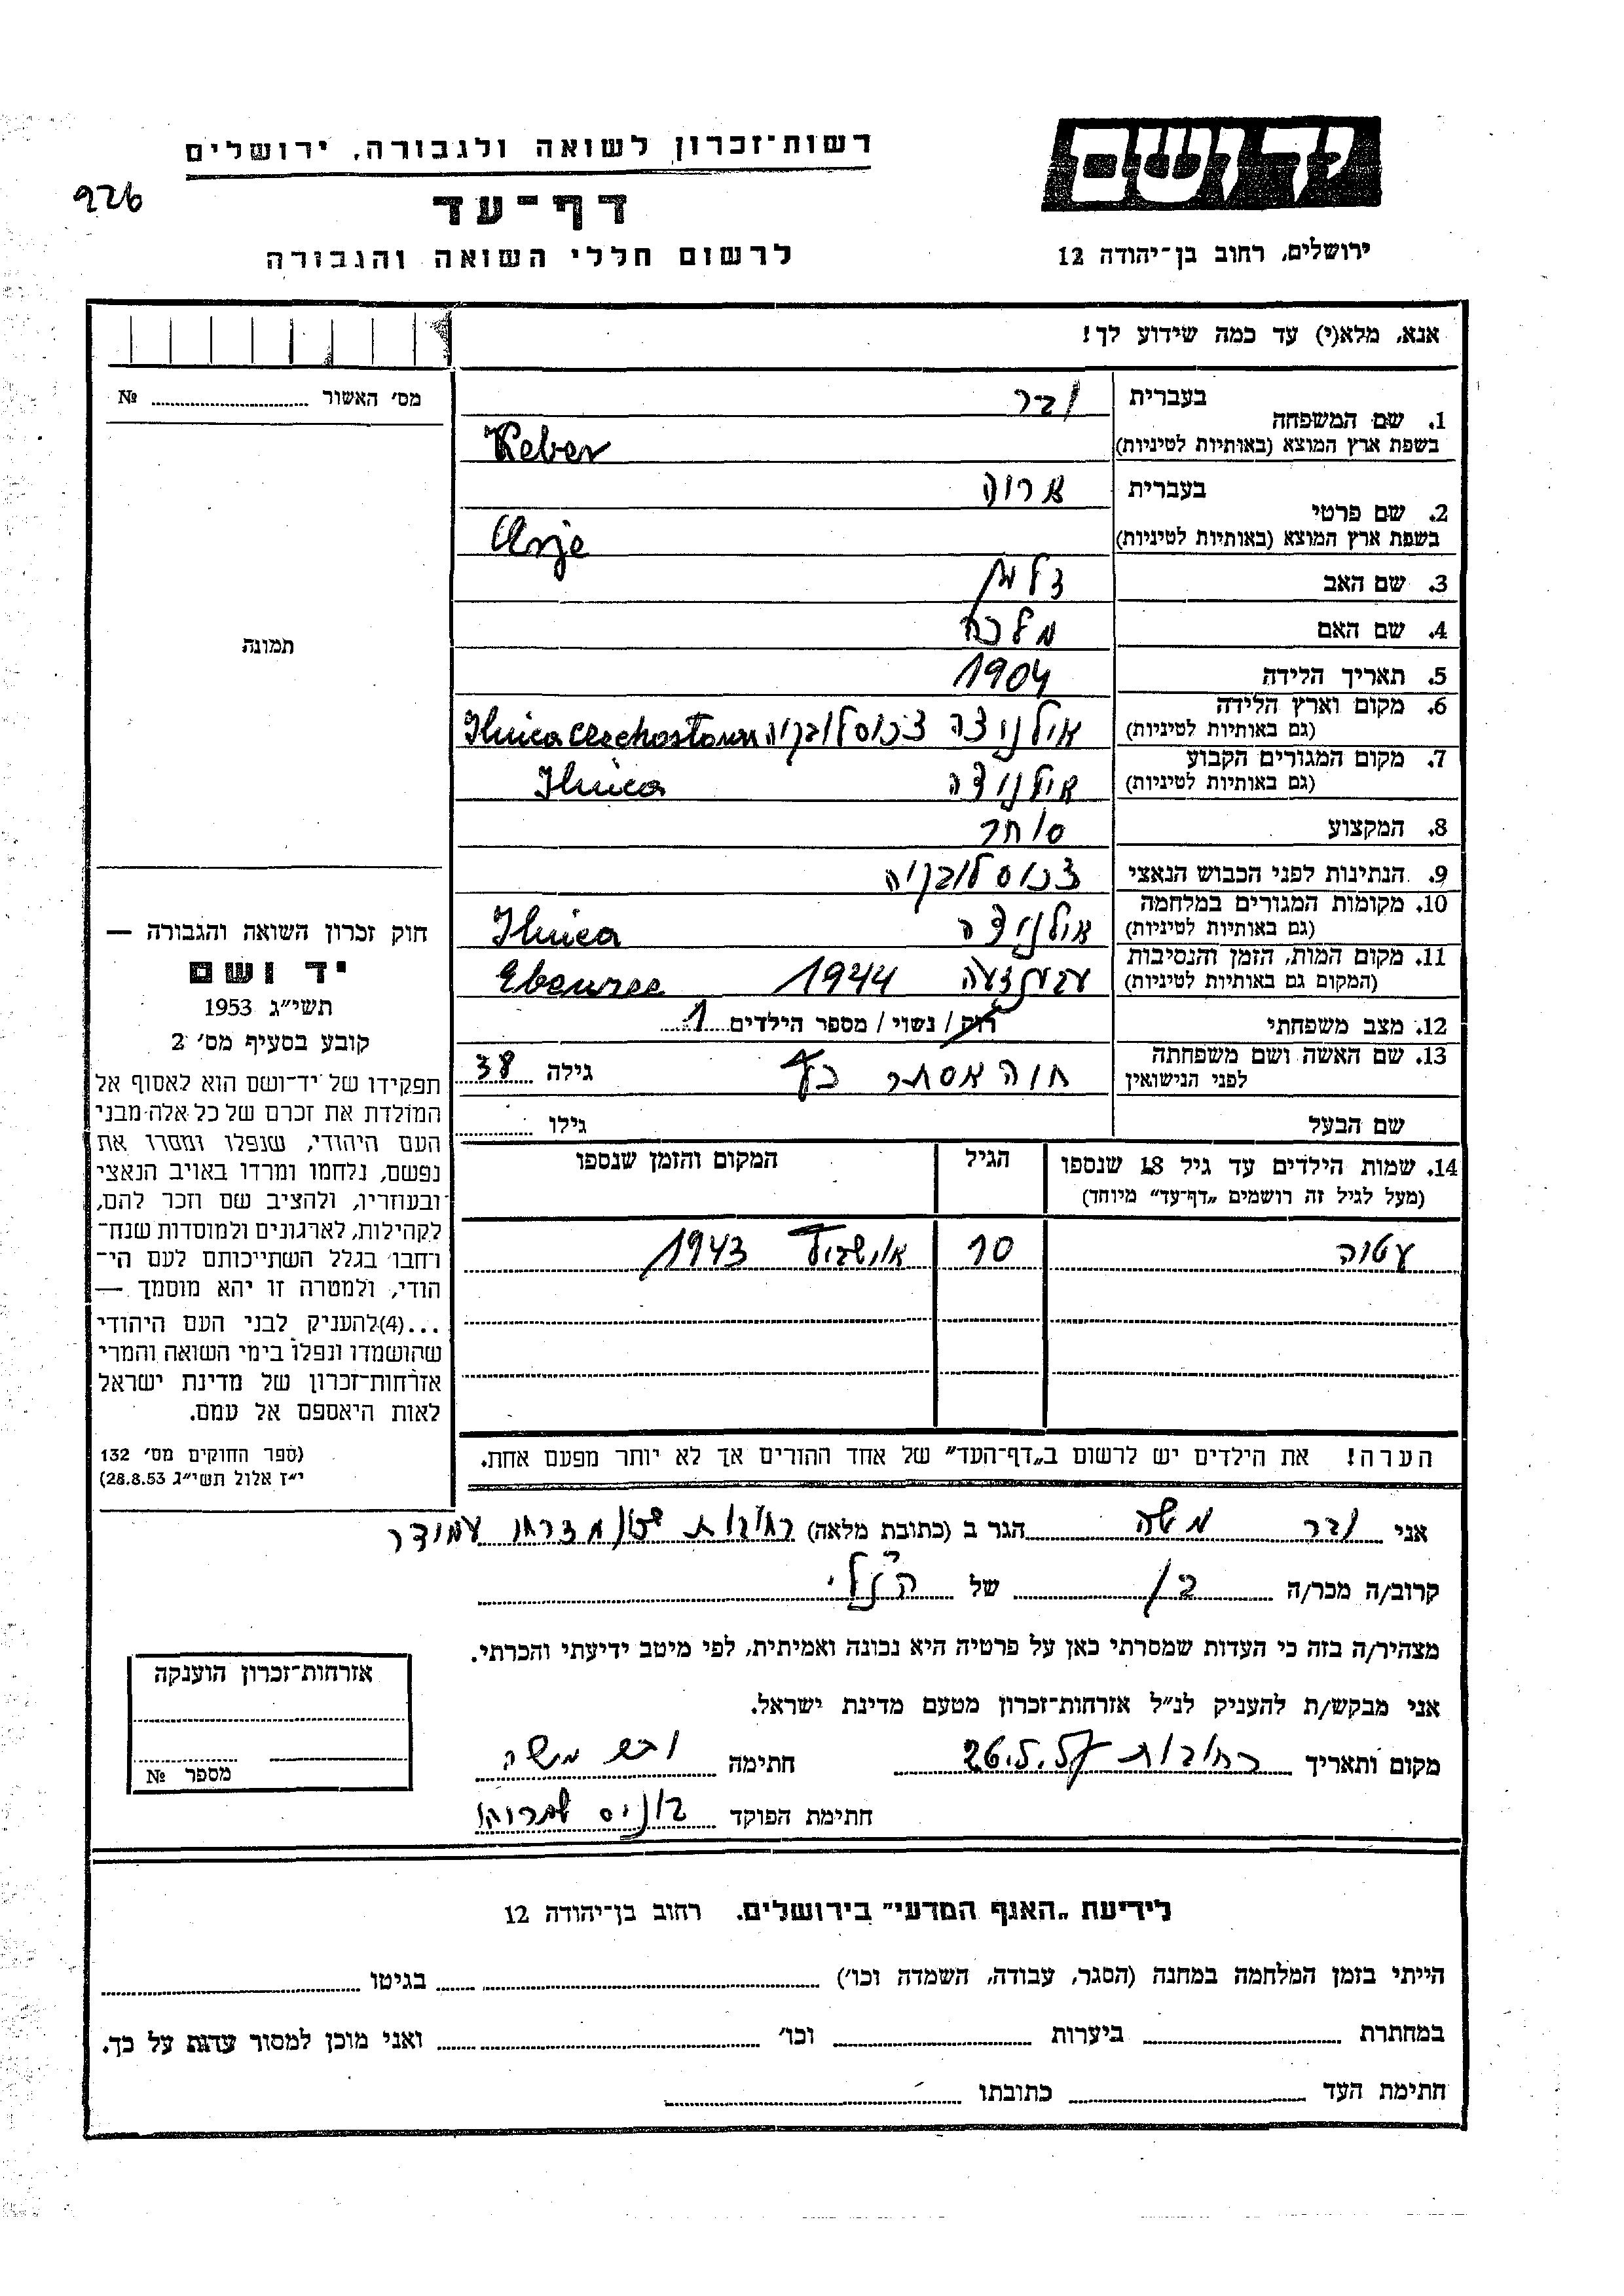 יד ושם
רשות־זכרון לשואה ולגבורה, ירושלים
926
דף־עד
ירושלים, רחוב בן־יהודה 12
לרשום חללי השואה והגבורה
אנא, מלא(י) עד כמה שידוע לך!
מס' האשור № 
תמונה
1. שם המשפחה
בעברית
ובר
בשפת ארץ המוצא (באותיות לטיניות)
Veber
2. שם פרטי
בעברית
אריה
בשפת ארץ המוצא (באותיות לטיניות)
Arje
3. שם האב זלמן
4. שם האם מלכה
5. תאריך הלידה 1904
6. מקום וארץ הלידה
(גם באותיות לטיניות)
אילניצה צכוסלובקיה Ilnica
7. מקום המגורים הקבוע
(גם באותיות לטיניות)
אילניצה Ilnica
8. המקצוע סוחר
9. הנתינות לפני הכבוש הנאצי צכוסלובקיה
10. מקומות המגורים במלחמה
(גם באותיות לטיניות)
אילניצה Ilnica
11. מקום המות, הזמן והנסיבות
(המקום גם באותיות לטיניות)
1944 Ebenzee
12. מצב משפחתי רוק / נשוי / מספר הילדים 1
13. שם האשה ושם משפחתה
לפני הנישואין
חוה אסתר גילה 38
שם הבעל גילו
14. שמות הילדים עד גיל 18 שנספו
(מעל לגיל זה רושמים „דף־עד” מיוחד)
הגיל
המקום והזמן שנספו
10 1943
הערה! את הילדים יש לרשום ב„דף־העד” של אחד ההורים אך לא יותר מפעם אחת.
חוק זכרון השואה והגבורה —
יד ושם
תשי״ג 1953
קובע בסעיף מס' 2
תפקידו של יד־ושם הוא לאסוף אל
המולדת את זכרם של כל אלה מבני
העם היהודי, שנפלו ומסרו את
נפשם, נלחמו ומרדו באויב הנאצי
ובעוזריו, ולהציב שם וזכר להם,
לקהילות, לארגונים ולמוסדות שנח־
רחבו בגלל השתייכותם לעם הי־
הודי, ולמטרה זו יהא מוסמך —
...(4)להעניק לבני העם היהודי
שהושמדו ונפלו בימי השואה והמרי
אזרחות־זכרון של מדינת ישראל
לאות היאספם אל עמם.
(ספר החוקים מס' 132
י״ז אלול תשי״ג 28.8.53)
אני ובר משה הגר ב (כתובת מלאה) רחובות
קרוב/ה מכר/ה בן של הנ״ל
מצהיר/ה בזה כי העדות שמסרתי כאן על פרטיה היא נכונה ואמיתית, לפי מיטב ידיעתי והכרתי.
אני מבקש/ת להעניק לנ״ל אזרחות־זכרון מטעם מדינת ישראל.
מקום ותאריך רחובות חתימה ובר משה
חתימת הפוקד
אזרחות־זכרון הוענקה
מספר №
לידיעת „האגף המדעי” בירושלים. רחוב בן־יהודה 12
הייתי בזמן המלחמה במחנה (הסגר, עבודה, השמדה וכו') בגיטו
במחתרת ביערות וכו' ואני מוכן למסור עדות על כך.
חתימת העד כתובתו